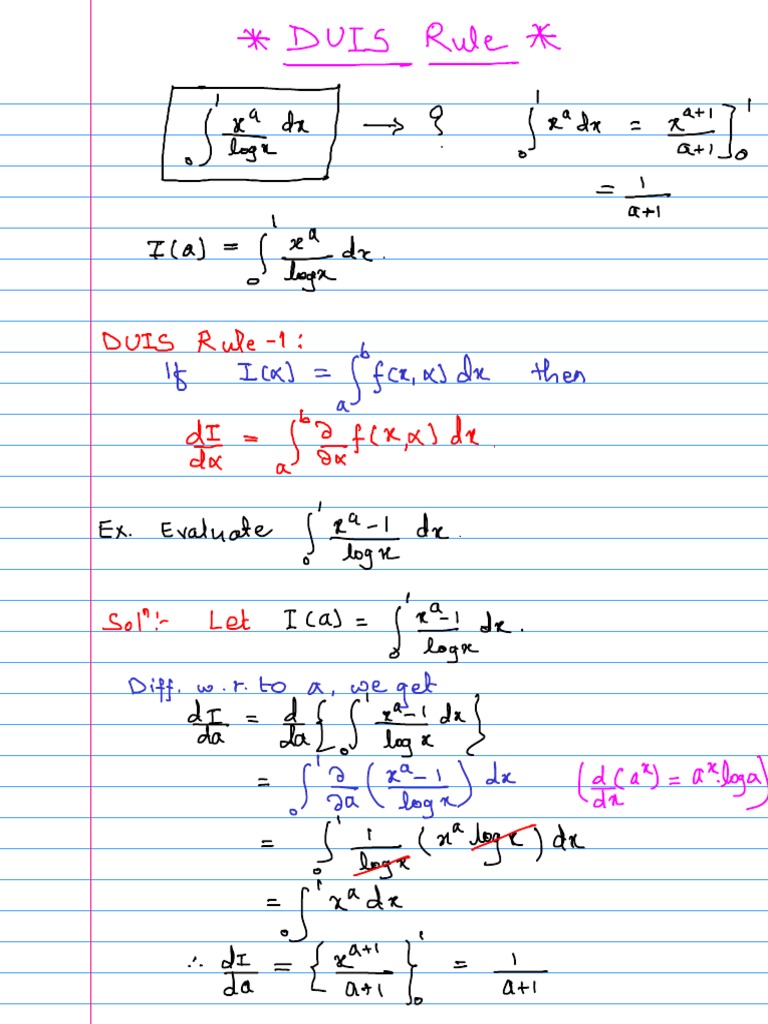 * DUIS Rule *
∫₀¹ x^a/log x dx → ? ∫₀¹ x^a dx = x^(a+1)/(a+1) ]₀¹
= 1/(a+1)
I(a) = ∫₀¹ x^a/log x dx.
DUIS Rule-1:
If I(α) = ∫ₐᵇ f(x, α) dx then
dI/dα = ∫ₐᵇ ∂/∂α f(x, α) dx.
Ex. Evaluate ∫₀¹ (x^a - 1)/log x dx.
Solⁿ:- Let I(a) = ∫₀¹ (x^a - 1)/log x dx.
Diff. w.r.to a, we get
dI/da = d/da { ∫₀¹ (x^a - 1)/log x dx }
= ∫₀¹ ∂/∂a ( (x^a - 1)/log x ) dx ( d/dx (a^x) = a^x. log a )
= ∫₀¹ 1/log x ( x^a log x ) dx
= ∫₀¹ x^a dx
∴ dI/da = { x^(a+1)/(a+1) }₀¹ = 1/(a+1)